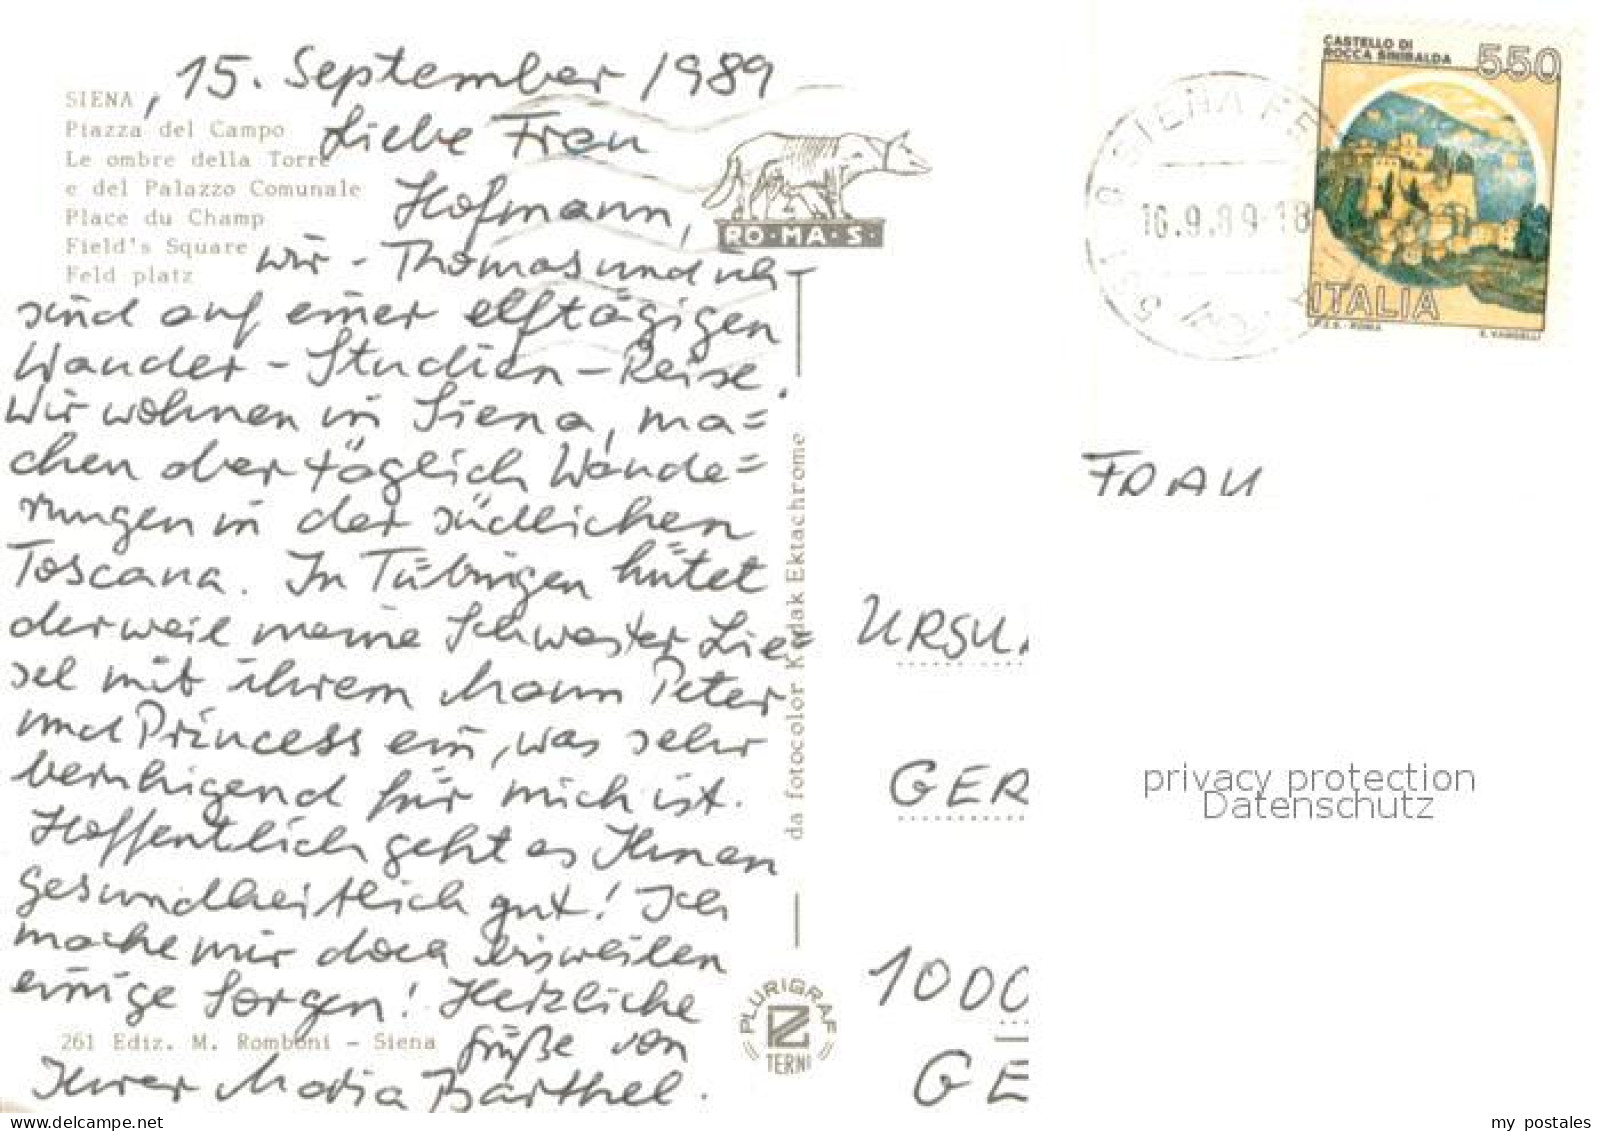 SIENA, 15. September 1989
Piazza del Campo
Le ombre della Torre
e del Palazzo Comunale
Place du Champ
Field's Square
Feld platz
Liebe Frau
Hofmann,
wir - Thomas und ich -
sind auf einer elftägigen
Wander-Studien-Reise.
Wir wohnen in Siena, ma=
chen aber täglich Wande=
rungen in der südlichen
Toscana. In Tübingen hütet
derweil meine Schwester Lie=
sel mit ihrem Mann Peter
und Princess ein, was sehr
beruhigend für mich ist.
Hoffentlich geht es Ihnen
gesundheitlich gut! Ich
mache mir doch bisweilen
einige Sorgen! Herzliche
Grüße von
Ihrer Maria Barthel.
261 Ediz. M. Romboni - Siena
RO·MA·S·
da fotocolor Kodak Ektachrome
PLURIGRAF
TERNI
SIENA FE
16.9.89-18
CASTELLO DI
ROCCA SINIBALDA
550
ITALIA
I.P.Z.S. - ROMA
E. VANGELLI
FRAU
URSU
GER
1000
GE
privacy protection
Datenschutz
www.delcampe.net
my_postales